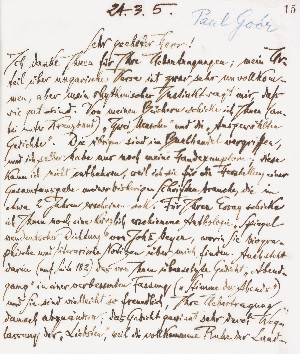 21.3.5.
15
Sehr geehrter Herr!
Ich danke Ihnen für Ihre Übertragungen; mein Ur-
teil über ungarische Verse ist zwar sehr unvollkom-
men, aber mein rhythmischer Instinkt sagt mir, daß
sie gut sind. Von meinen Büchern schicke ich Ihnen
"Zwei Menschen" und die "Ausgewählten
Gedichte". Die übrigen sind im Buchhandel vergriffen,
und ich selber habe nur noch meine Handexemplare; diese
kann ich nicht entbehren, weil ich sie für die Herstellung einer
Gesamtausgabe meiner bisherigen Schriften brauche, die in
etwa 2 Jahren erscheinen soll. Für Ihren Essay schicke
ich Ihnen noch eine kürzlich erschienene Anthologie, "Spiegel
neudeutscher Dichtung" von worin Sie biogra-
phische und literarische Notizen über mich finden. Auch steht
darin das von Ihnen übersetzte Gedicht
in einer verbesserten Fassung ("Stimme des Abends")
und Sie sind vielleicht so freundlich, Ihre Übertragung
danach abzuändern; das Gedicht gewinnt sehr durch Weg-
lassung der weil die vollkommene Ruhe der Land-